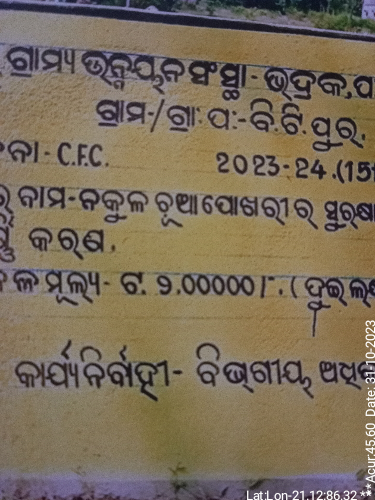 ଗ୍ରାମ୍ୟ ଉନ୍ନୟନ ସଂସ୍ଥା - ଭଦ୍ରକ, ପ
ଗ୍ରାମ-/ଗ୍ରା: ପ:- ବି.ଟି. ପୁର୍.
ନା - C.F.C. 2023-24.(15
ର୍ ନାମ- ନକୁଳ ଚୂଆ ପୋଖରୀ ର୍ ସୁରକ୍ଷା
କରଣ.
କଳ ମୂଲ୍ୟ- ଟ. ୨.00000/-. ( ଦୁଇ ଲ
କାର୍ଯ୍ୟନିର୍ବାହୀ - ବିଭାଗୀୟ ଅଧି
Lat:Lon-21.12:86.32 *** Acur:45.60 Date: 31-10-2023